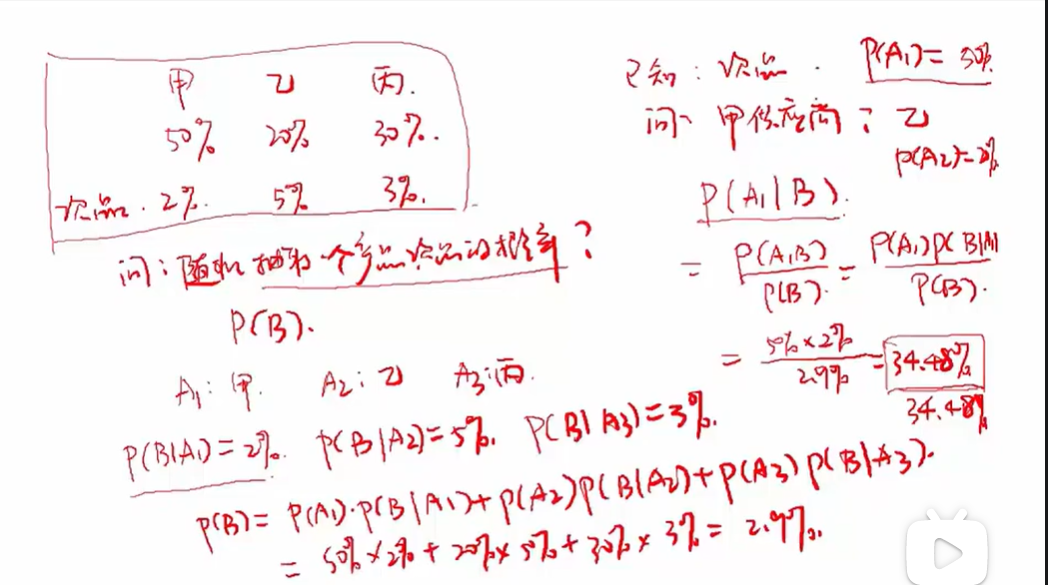 甲 乙 丙.
50% 20% 30%.
次品. 2%. 5% 3%.
问:随机抽取一个产品次品的概率?
P(B).
A₁:甲. A₂:乙 A₃:丙.
P(B|A₁)=2%. P(B|A₂)=5%. P(B|A₃)=3%.
P(B)= P(A₁)·P(B|A₁)+P(A₂)P(B|A₂)+P(A₃)P(B|A₃).
= 50%×2%+20%×5%+30%×3%= 2.9%.
已知:次品. P(A₁)=50%.
问、甲供应商? 乙
P(A₂)=20%
P(A₁|B).
= P(A₁B)/P(B). = P(A₁)P(B|A₁)/P(B).
= 50%×2%/2.9% =34.48%
34.48%